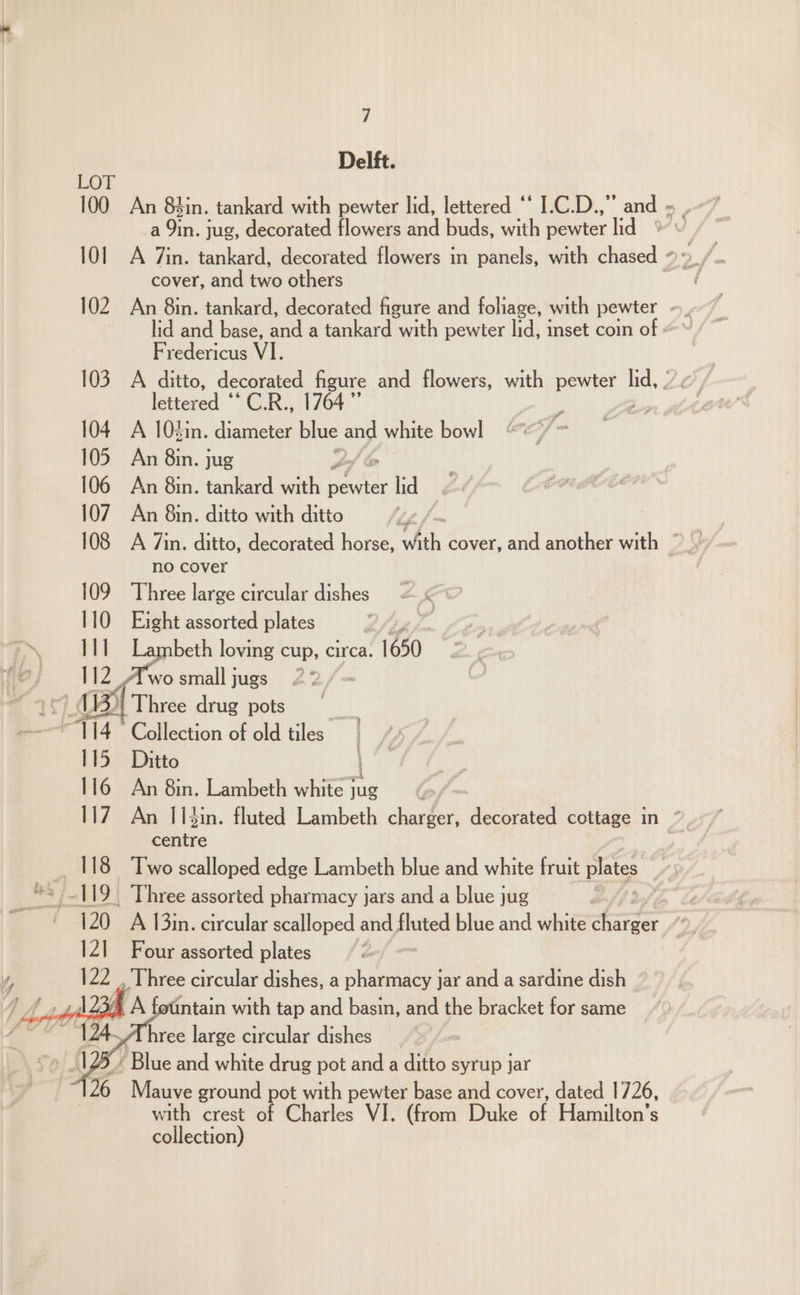 7
Delft.
LOT
100 An 8½in. tankard with pewter lid, lettered “ I.C.D.,” and
a 9in. jug, decorated flowers and buds, with pewter lid
101 A 7in. tankard, decorated flowers in panels, with chased
cover, and two others
102 An 8in. tankard, decorated figure and foliage, with pewter
lid and base, and a tankard with pewter lid, inset coin of
Fredericus VI.
103 A ditto, decorated figure and flowers, with pewter lid,
lettered “ C.R., 1764 ”
104 A 10½in. diameter blue and white bowl
105 An 8in. jug
106 An 8in. tankard with pewter lid
107 An 8in. ditto with ditto
108 A 7in. ditto, decorated horse, with cover, and another with
no cover
109 Three large circular dishes
110 Eight assorted plates
111 Lambeth loving cup, circa. 1650
112 Two small jugs
113 Three drug pots
114 Collection of old tiles
115 Ditto
116 An 8in. Lambeth white jug
117 An 11½in. fluted Lambeth charger, decorated cottage in
centre
118 Two scalloped edge Lambeth blue and white fruit plates
119 Three assorted pharmacy jars and a blue jug
120 A 13in. circular scalloped and fluted blue and white charger
121 Four assorted plates
122 Three circular dishes, a pharmacy jar and a sardine dish
123 A fountain with tap and basin, and the bracket for same
124 Three large circular dishes
125 Blue and white drug pot and a ditto syrup jar
126 Mauve ground pot with pewter base and cover, dated 1726,
with crest of Charles VI. (from Duke of Hamilton's
collection)